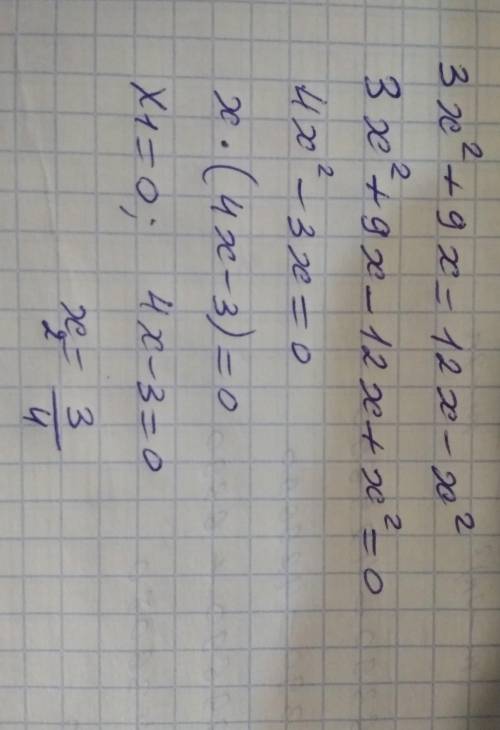 3x² + 9x = 12x - x²
3x² + 9x - 12x + x² = 0
4x² - 3x = 0
x · (4x - 3) = 0
x₁ = 0; 4x - 3 = 0
x₂ = 3/4